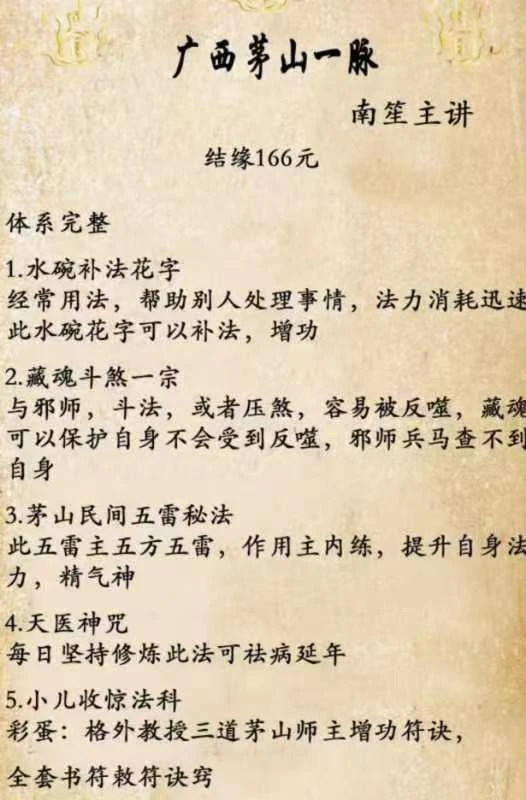 广西茅山一脉
南笙主讲
结缘166元
体系完整
1.水碗补法花字
经常用法，帮助别人处理事情，法力消耗迅速
此水碗花字可以补法，增功
2.藏魂斗煞一宗
与邪师，斗法，或者压煞，容易被反噬，藏魂
可以保护自身不会受到反噬，邪师兵马查不到
自身
3.茅山民间五雷秘法
此五雷主五方五雷，作用主内练，提升自身法
力，精气神
4.天医神咒
每日坚持修炼此法可祛病延年
5.小儿收惊法科
彩蛋：格外教授三道茅山师主增功符诀，
全套书符敕符诀窍